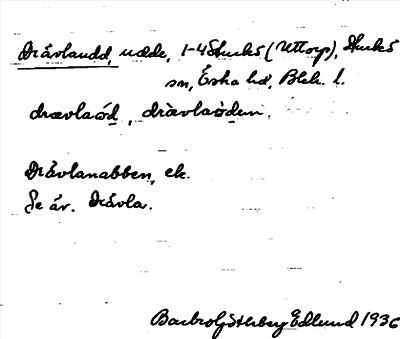 Dråvlaudd, udde, 1-4 Sturkö (Uttorp), Sturkö
sn, Östra hd, Blek. l.
drævlaód, drævlaòden.
Dråvlanabben, ek.
Se äv. Dråvla.
Barbro Götherberg Edlund 1936